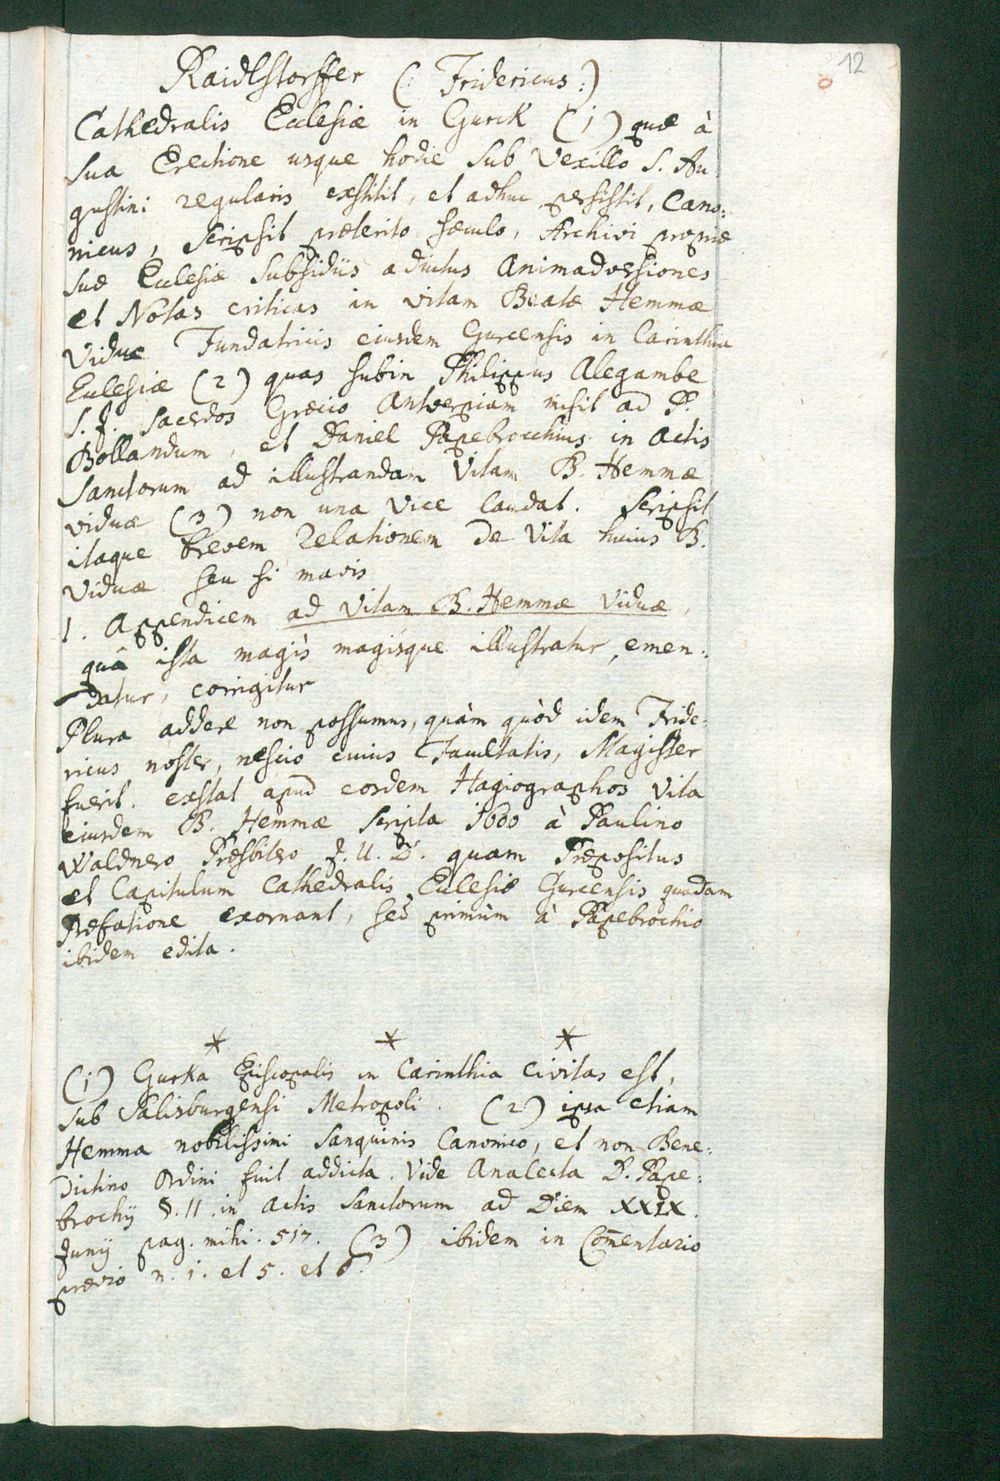 12
Raidlstorffer (: Fridericus :)
Cathedralis Ecclesiæ in Gurck (1) quæ à
sua Erectione usque hodie sub vexillo S. Au-
gustini regularis exstitit, et adhuc persistit, Cano:
nicus, scripsit præterito sæculo, Archivi propriæ
suæ Ecclesiæ subsidiis adiutus Animadversiones
et Notas criticas in vitam Beatæ Hemmæ
Viduæ Fundatricis eiusdem Gurcensis in Carinthia
Ecclesiæ (2) quas subin Philippus Alegambe
S. J. Sacerdos Græcio Antverpiam misit ad P.
Bollandum, et Daniel Papebrocchius in Actis
Sanctorum ad illustrandam Vitam B. Hemmæ
viduæ (3) non una vice laudat. Scripsit
itaque brevem Relationem de Vita huius B.
Viduæ seu si mavis
1. Appendicem ad Vitam B. Hemmæ Viduæ,
quâ ista magis magisque illustratur, emen:
datur, corrigitur
Plura addere non possumus, quàm quòd idem Fride:
ricus noster, nescio cuius Facultatis, Magister
fuerit. exstat apud eosdem Hagiographos Vita
eiusdem B. Hemmæ scripta 1600 à Paulino
Waldnero Præsbitero J. U. D. quam Præpositus
et Capitulum Cathedralis Eclesiæ Gurcensis quadam
Præfatione exornant, sed primùm à Papebrochio
ibidem edita.
* * *
(1) Gurka Episcopalis in Carinthia Civitas est,
sub Salisburgensi Metropoli. (2) ipsa etiam
Hemma nobilissimi Sanguinis Canonico, et non Bene:
dictino Ordini fuit addicta. Vide Analecta P. Pape:
brochij §. II. in Actis Sanctorum ad Diem XXIX.
Junij pag. mihi. 517. (3) ibidem in Com̄entario
prævio n. 1. et 5. et 6.